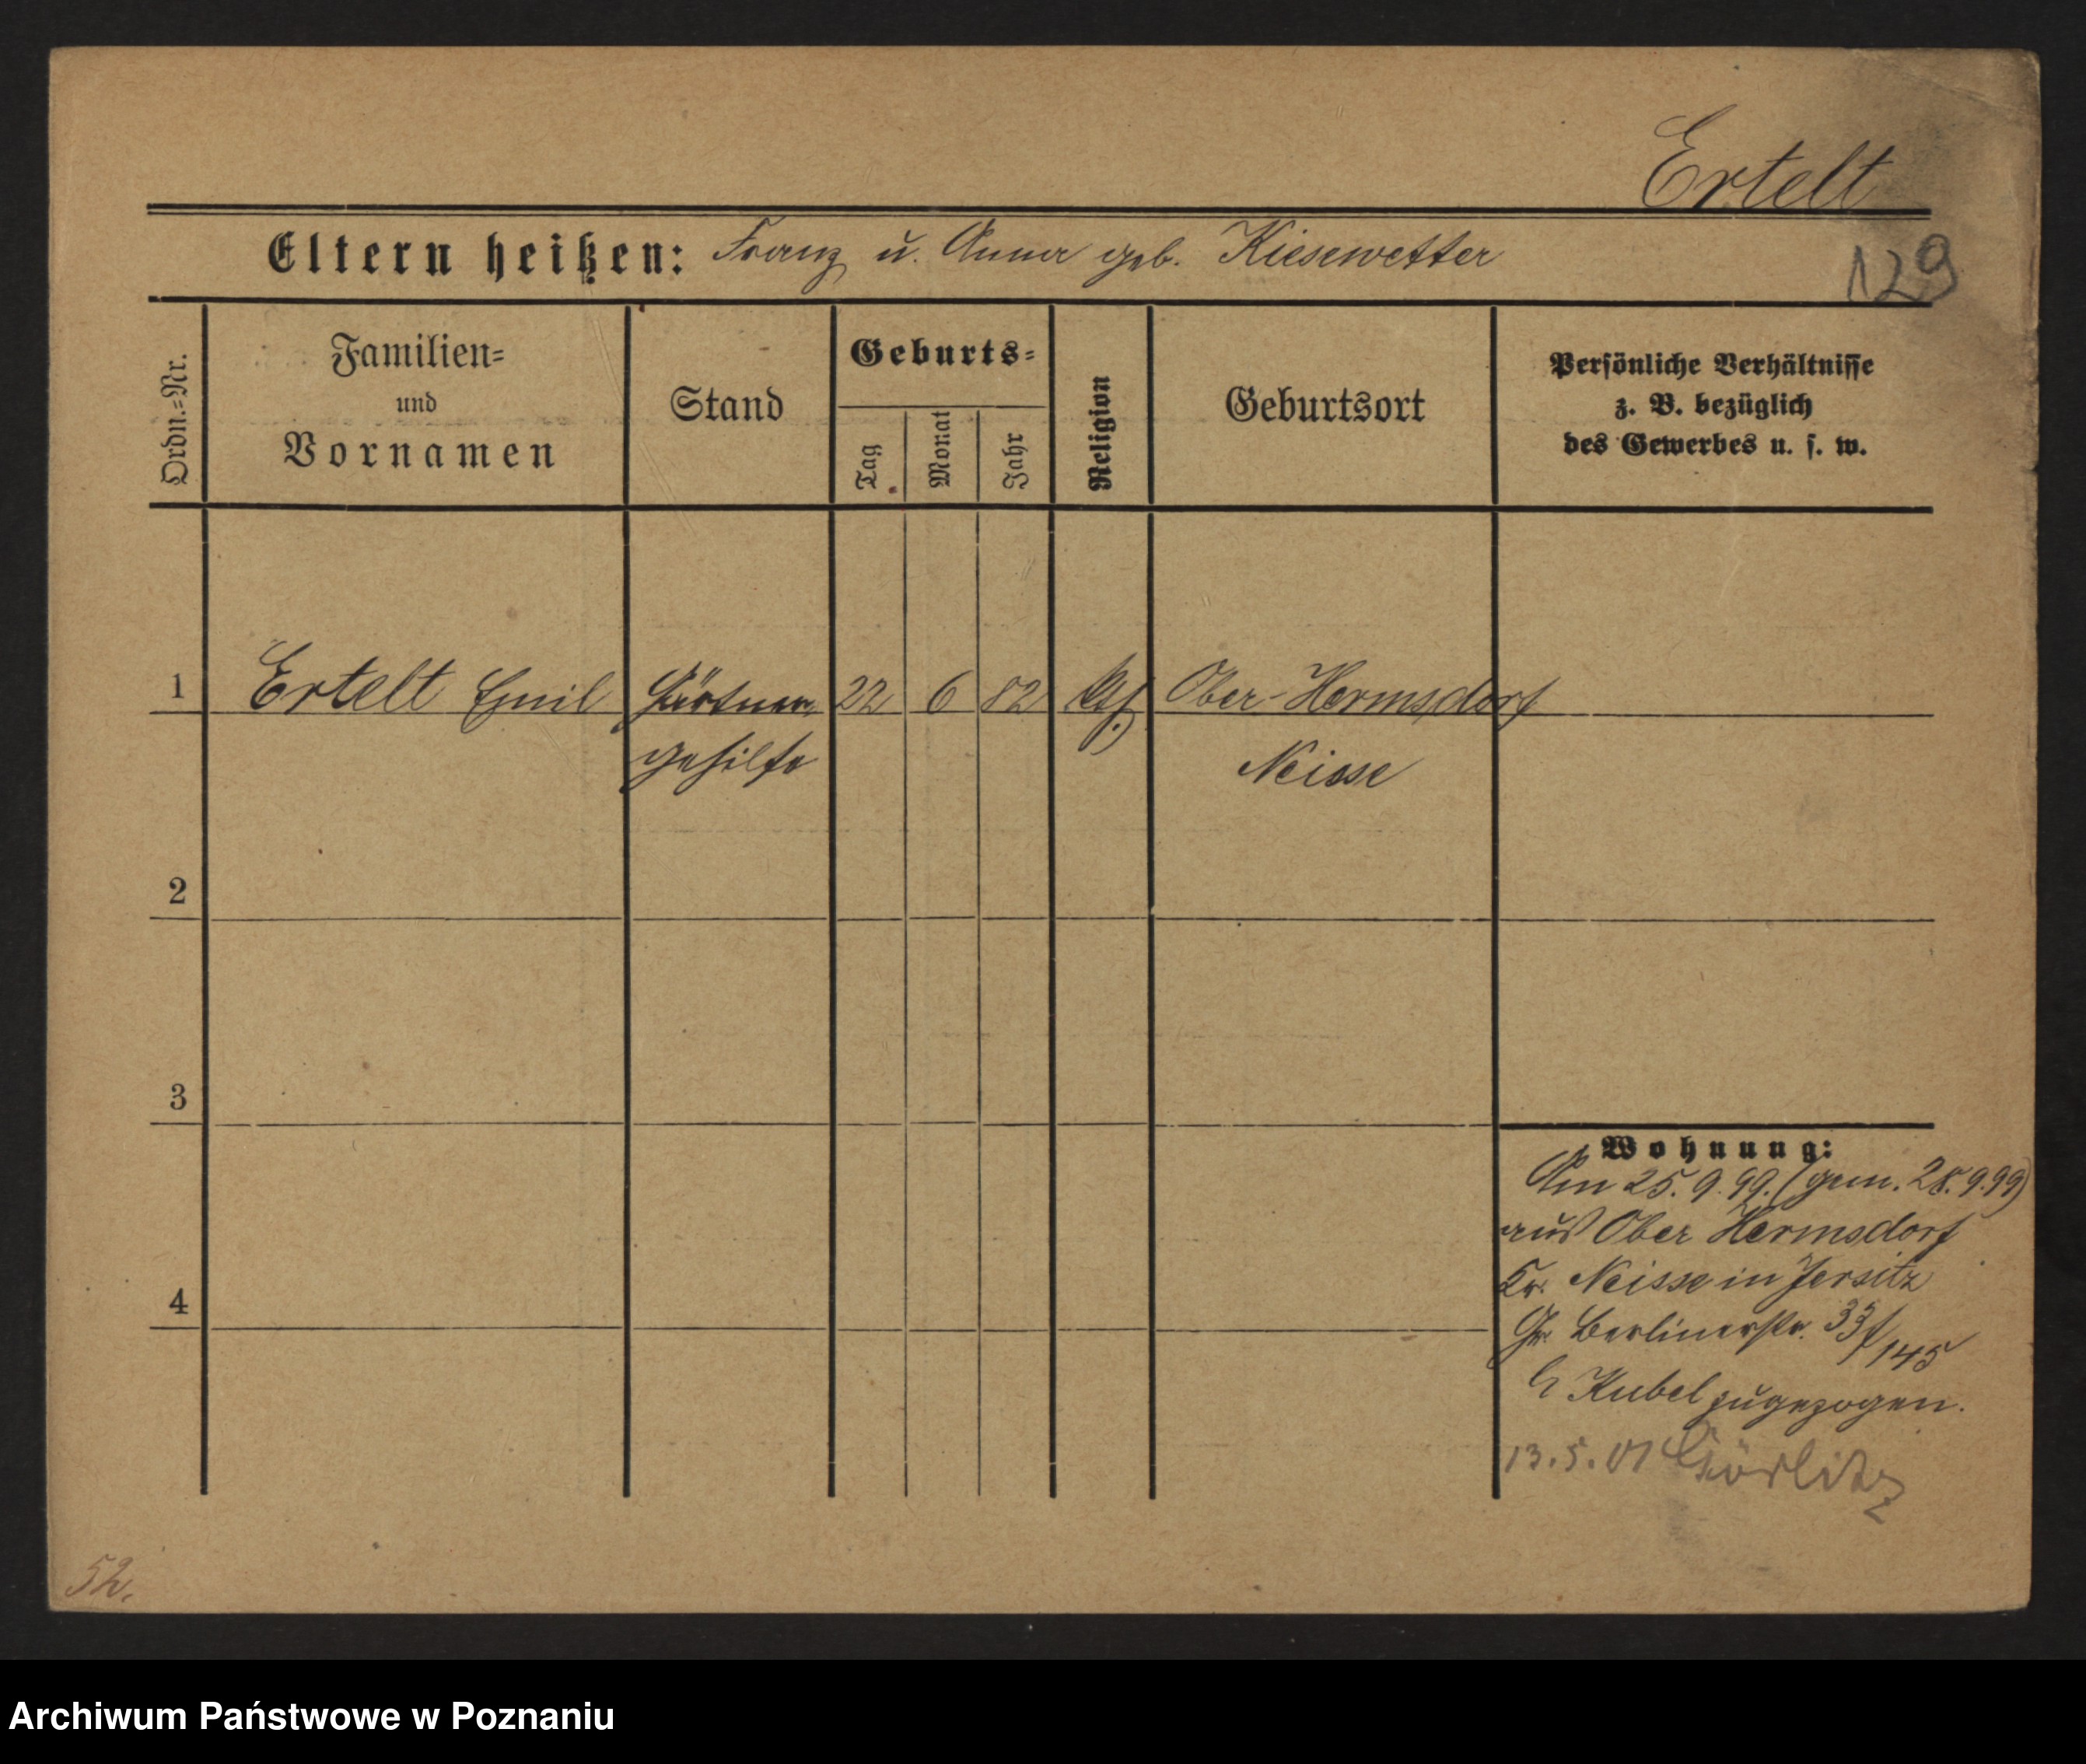 Ertelt
129
Eltern heißen: Franz u. Anna geb. Kiesewetter
Ordn.=Nr.
Familien=
und
Vornamen
Stand
Geburts=
Tag
Monat
Jahr
Religion
Geburtsort
Persönliche Verhältnisse
z. B. bezüglich
des Gewerbes u. s. w.
1 Ertelt Emil Gärtner- 22 6 82 Kth Ober-Hermsdorf
gehilfe Neisse
2
3
4
Wohnung:
Am 25.9.99. (gem. 28.9.99)
aus Ober Hermsdorf
Kr. Neisse in Jersitz
Gr. Berlinerstr. 33/145
Kubel zugezogen.
13.5.01 Görlitz
52.
Archiwum Państwowe w Poznaniu